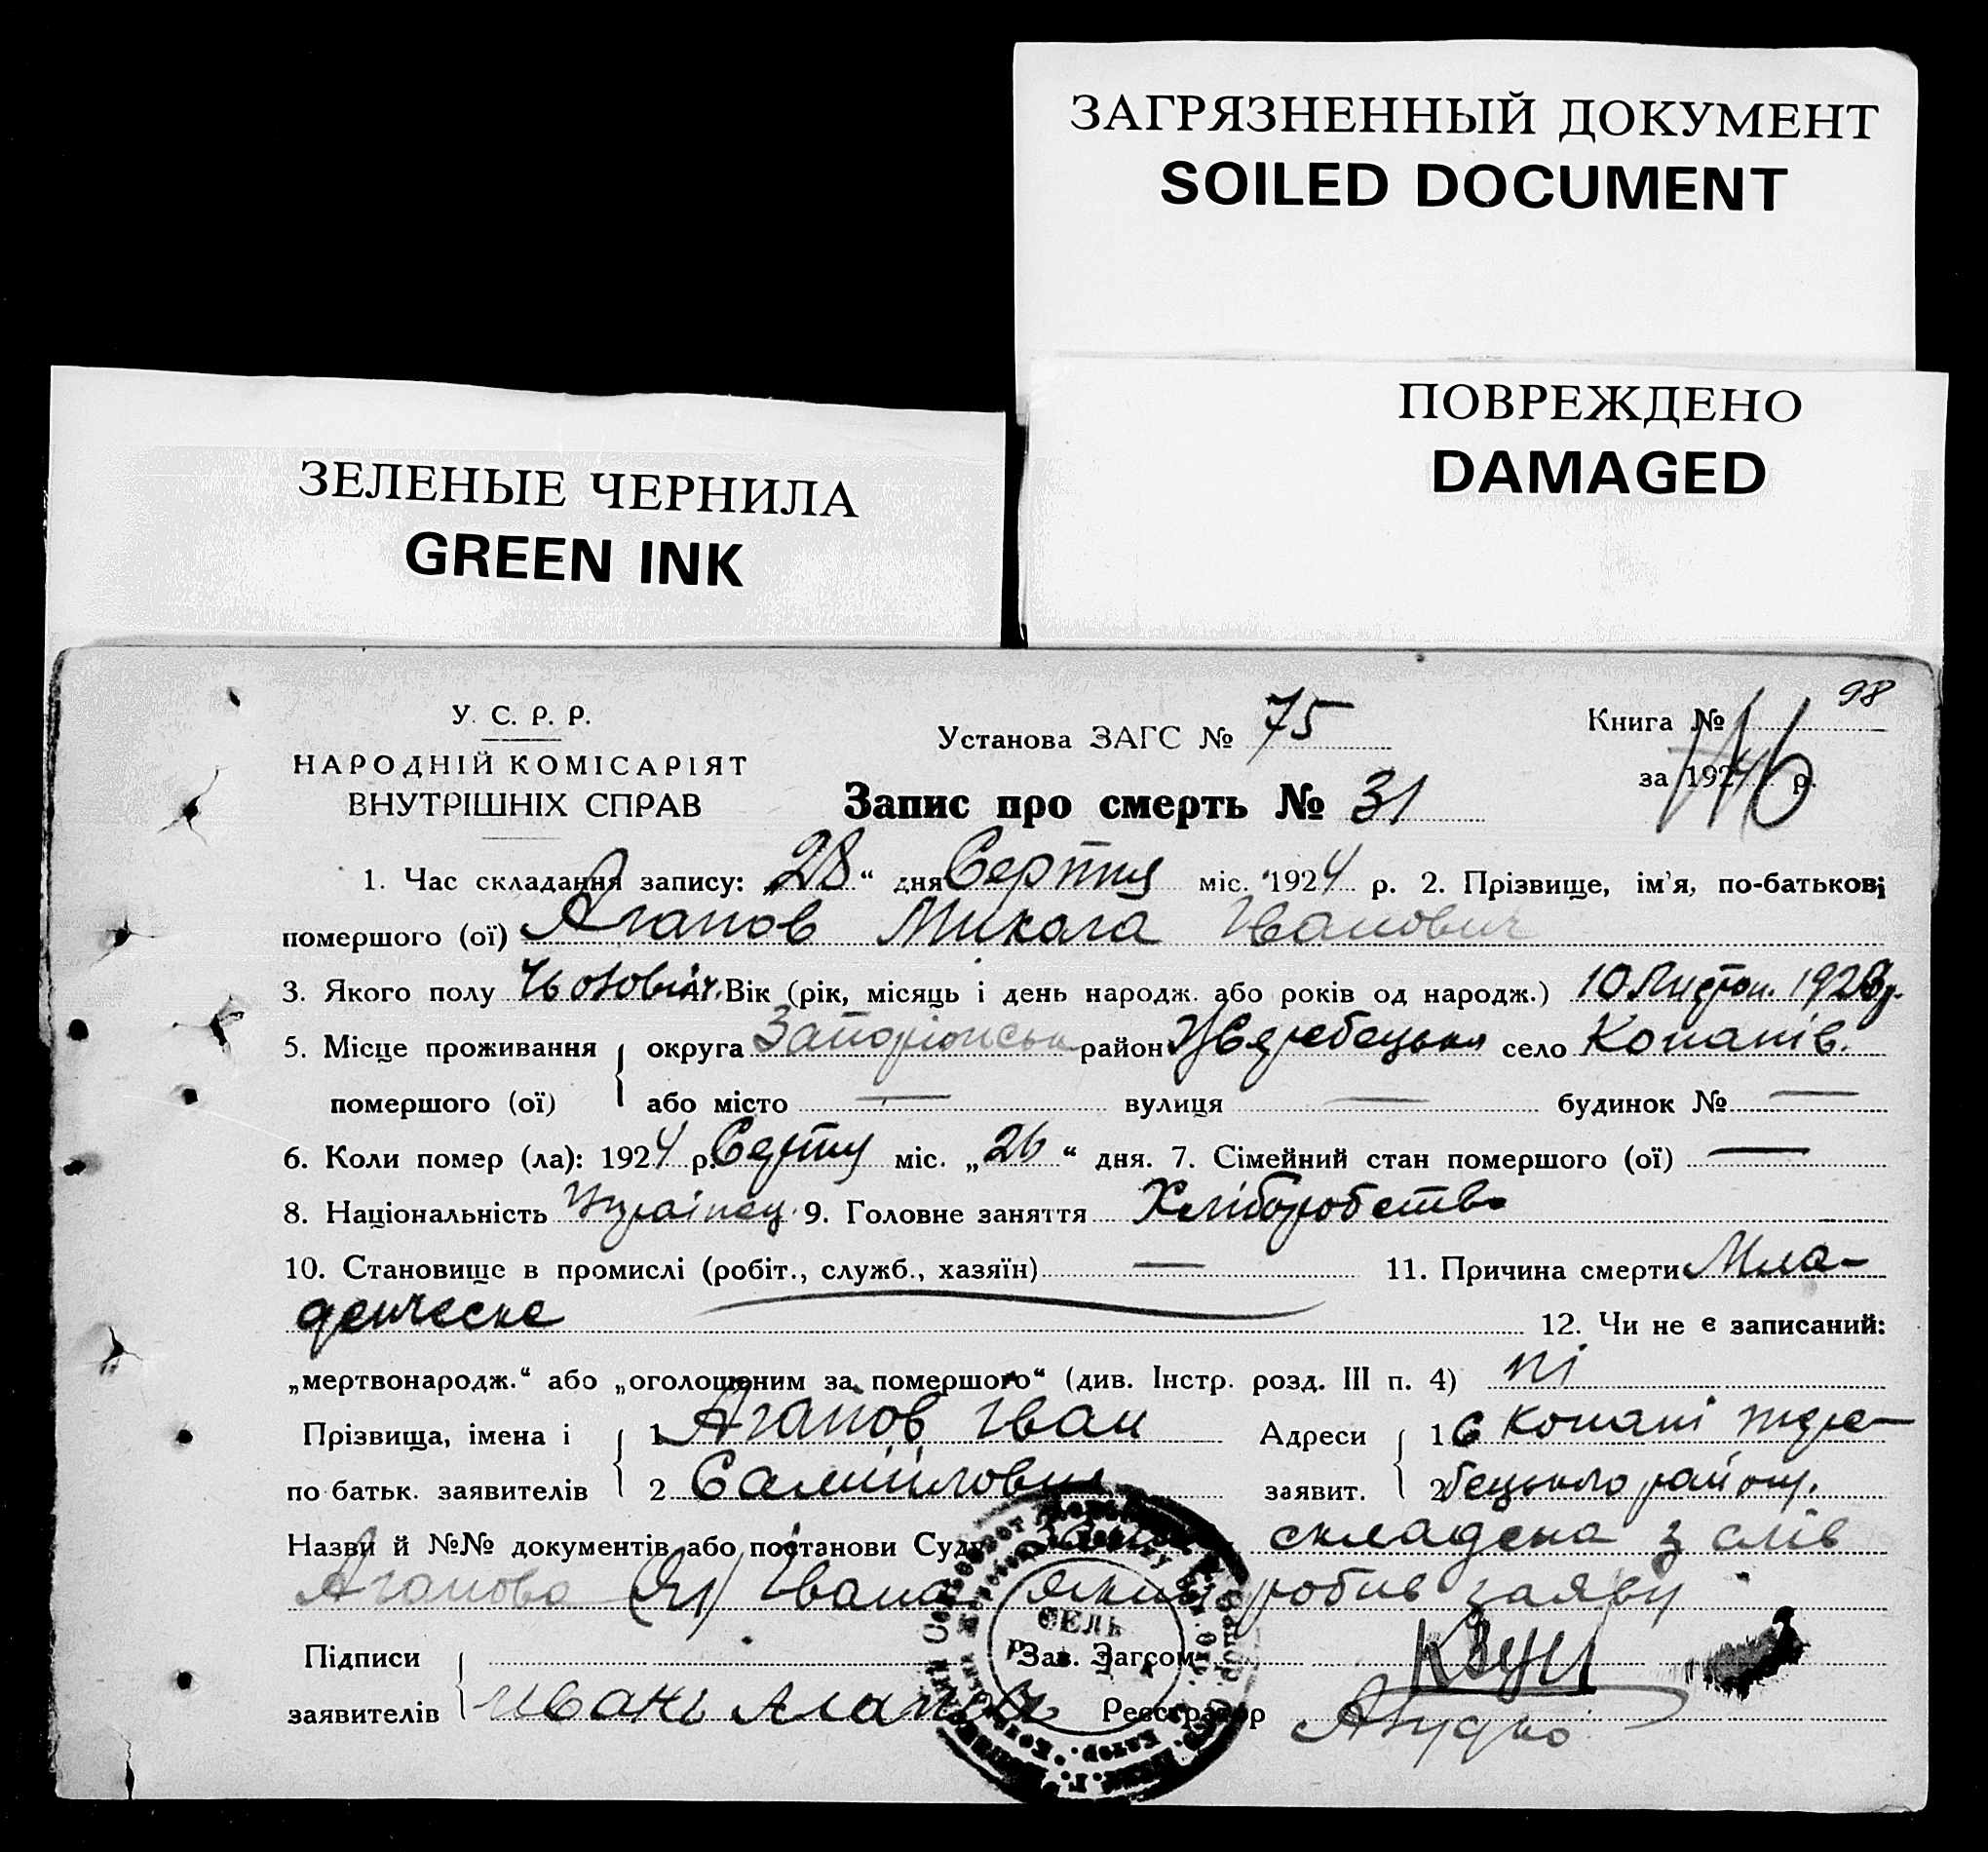 ЗАГРЯЗНЕННЫЙ ДОКУМЕНТ
SOILED DOCUMENT
ПОВРЕЖДЕНО
DAMAGED
ЗЕЛЕНЫЕ ЧЕРНИЛА
GREEN INK
98
У. С. Р. Р.
НАРОДНІЙ КОМІСАРІЯТ
ВНУТРІШНІХ СПРАВ
Установа ЗАГС № 75
Книга №
за 192 р.
Запис про смерть № 31
1. Час складання запису: „28“ дня Серпня міс. 1924 р. 2. Прізвище, ім'я, по-батькові
помершого (ої) Агапов Микола Іванович
3. Якого полу Чоловіч. 4. Вік (рік, місяць і день народж. або років од народж.) 10 Листоп. 1923 р.
5. Місце проживання округа Запоріжська район село Копанів.
помершого (ої) або місто — вулиця — будинок № —
6. Коли помер (ла): 1924 р. Серпня міс. „26“ дня. 7. Сімейний стан помершого (ої) —
8. Національність Українец 9. Головне заняття Хліборобство
10. Становище в промислі (робіт., служб., хазяїн) — 11. Причина смерти Мла-
денческе 12. Чи не є записаний:
„мертвонародж.“ або „оголошеним за помершого“ (див. Інстр. розд. III п. 4) ні
Прізвища, імена і 1 Агапов Іван Адреси 1 С Копані Жере-
по батьк. заявителів 2 Самійлович заявит. 2 бецького району.
Назви й №№ документів або постанови Суду складена з слів
Агапова Івана який робив заяву
Підписи Зав. Загсом
заявителів Иванъ Агапов Реєстратор
СЕЛЬ